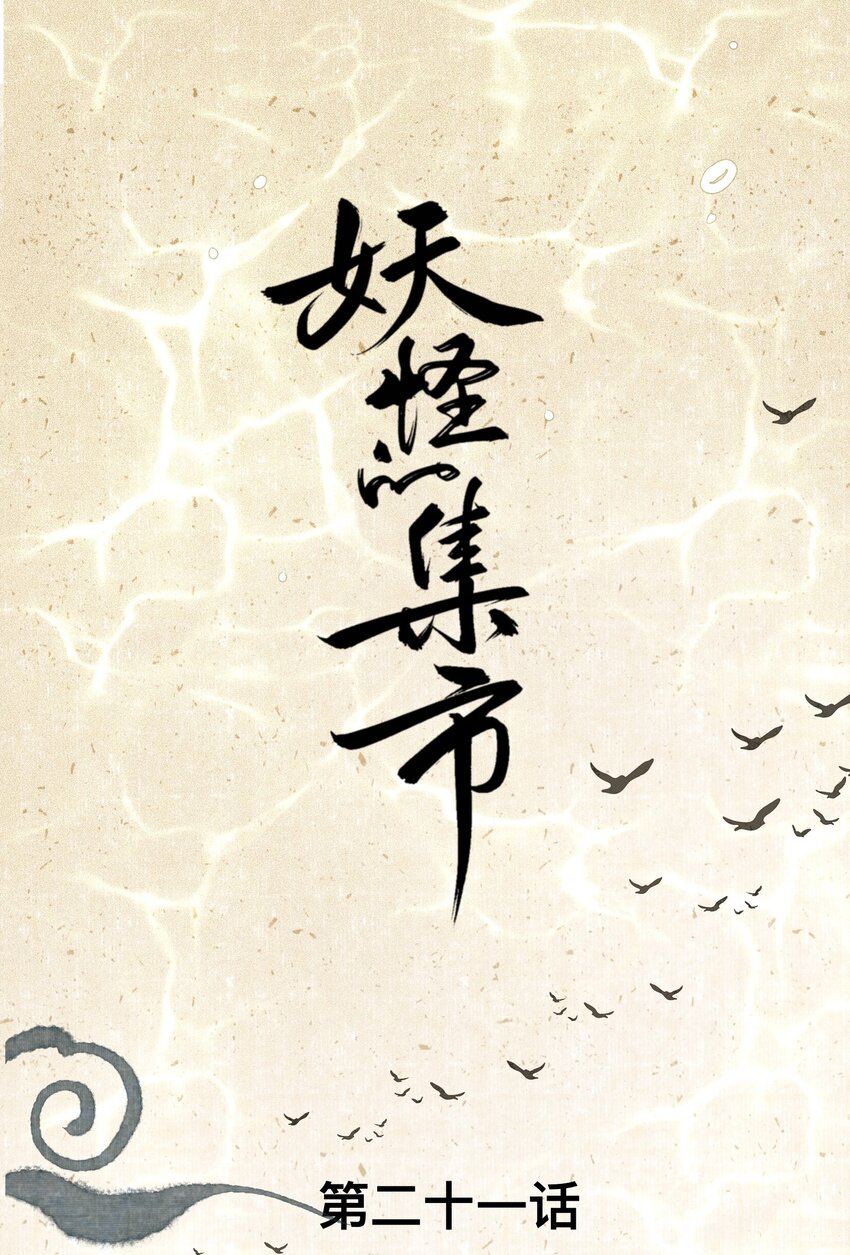 妖怪的集市
第二十一话